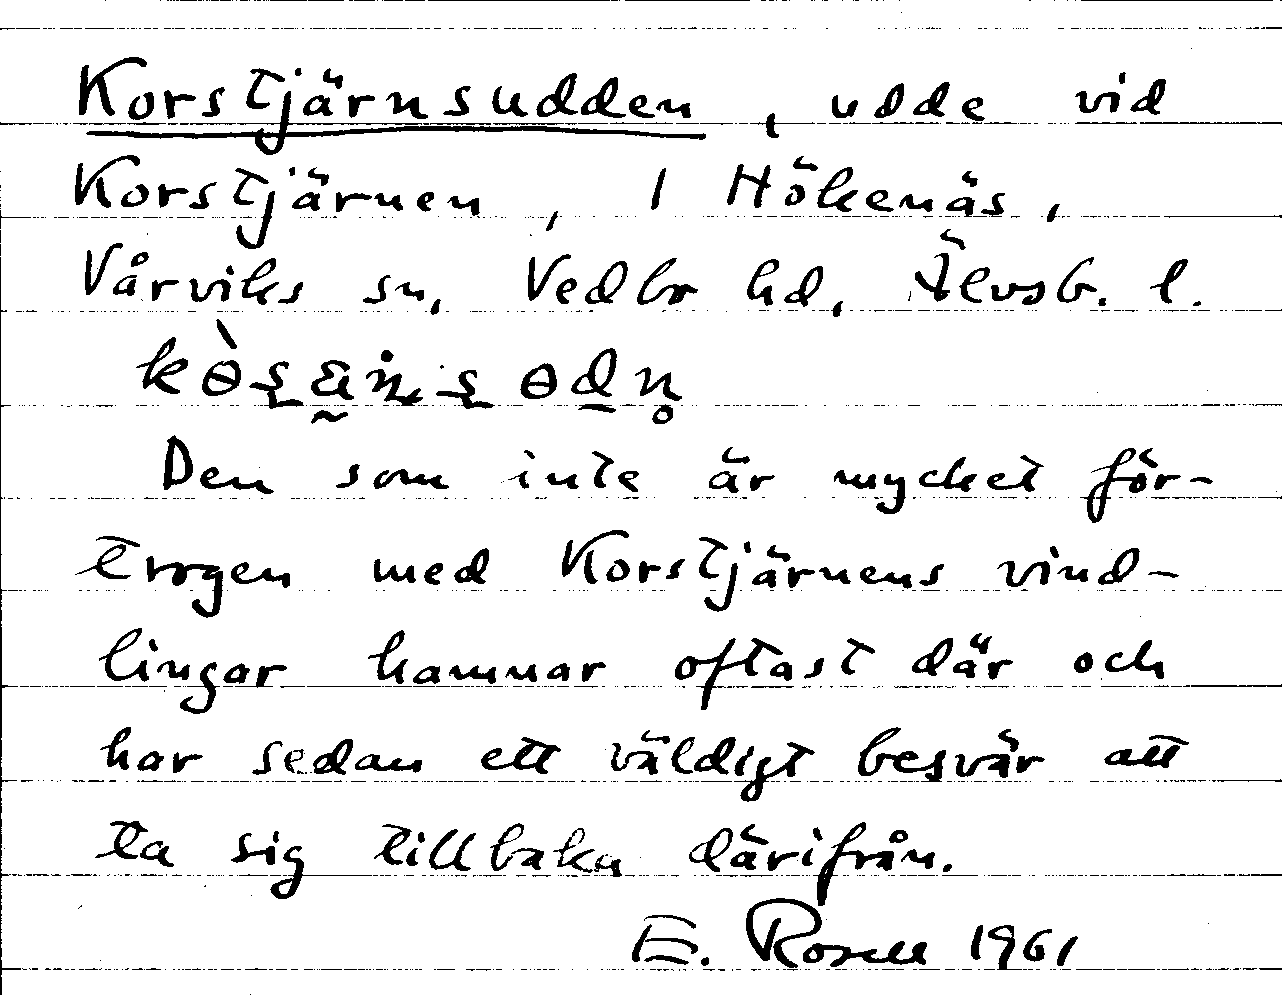 Korstjärnsudden, udde vid
Korstjärnen, 1 Hökenäs,
Vårviks sn, Vedbo hd, Älvsb. l.
Den som inte är mycket för-
trogen med Korstjärnens vind-
lingar hamnar oftast där och
har sedan ett väldigt besvär att
ta sig tillbaka därifrån.
E. Rosell 1961